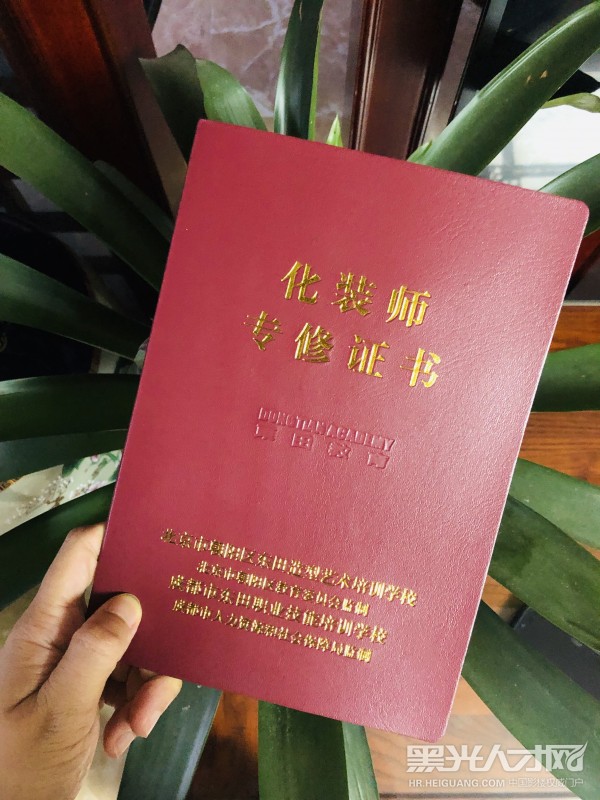 化装师
专修证书
DONGTIAN ACADEMY
東田教育
北京市朝阳区东田造型艺术培训学校
北京市朝阳区教育委员会监制
成都市东田职业技能培训学校
成都市人力资源和社会保障局监制
黑光人才网
HR.HEIGUANG.COM 中国影楼校园门户